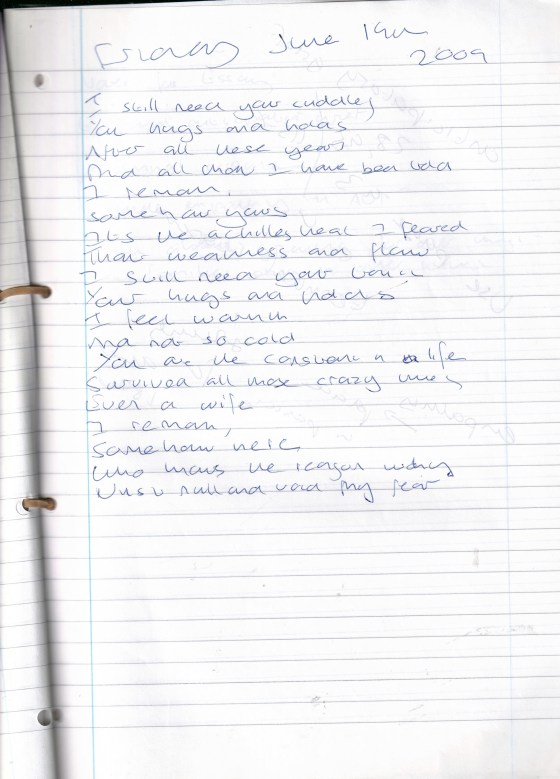 Friday June 19th
2009
I still need your cuddles
Your hugs and holds
After all these years
And all than I have been told
I remain,
somehow yours
It's the achilles heal I feared
That weakness and flaw
I still need your touch
Your hugs and holds
I feel warmth
And not so cold
You are the constant in life
Survived all those crazy times
Even a wife
I remain,
Somehow here
Who knows the reason
null and void my fear